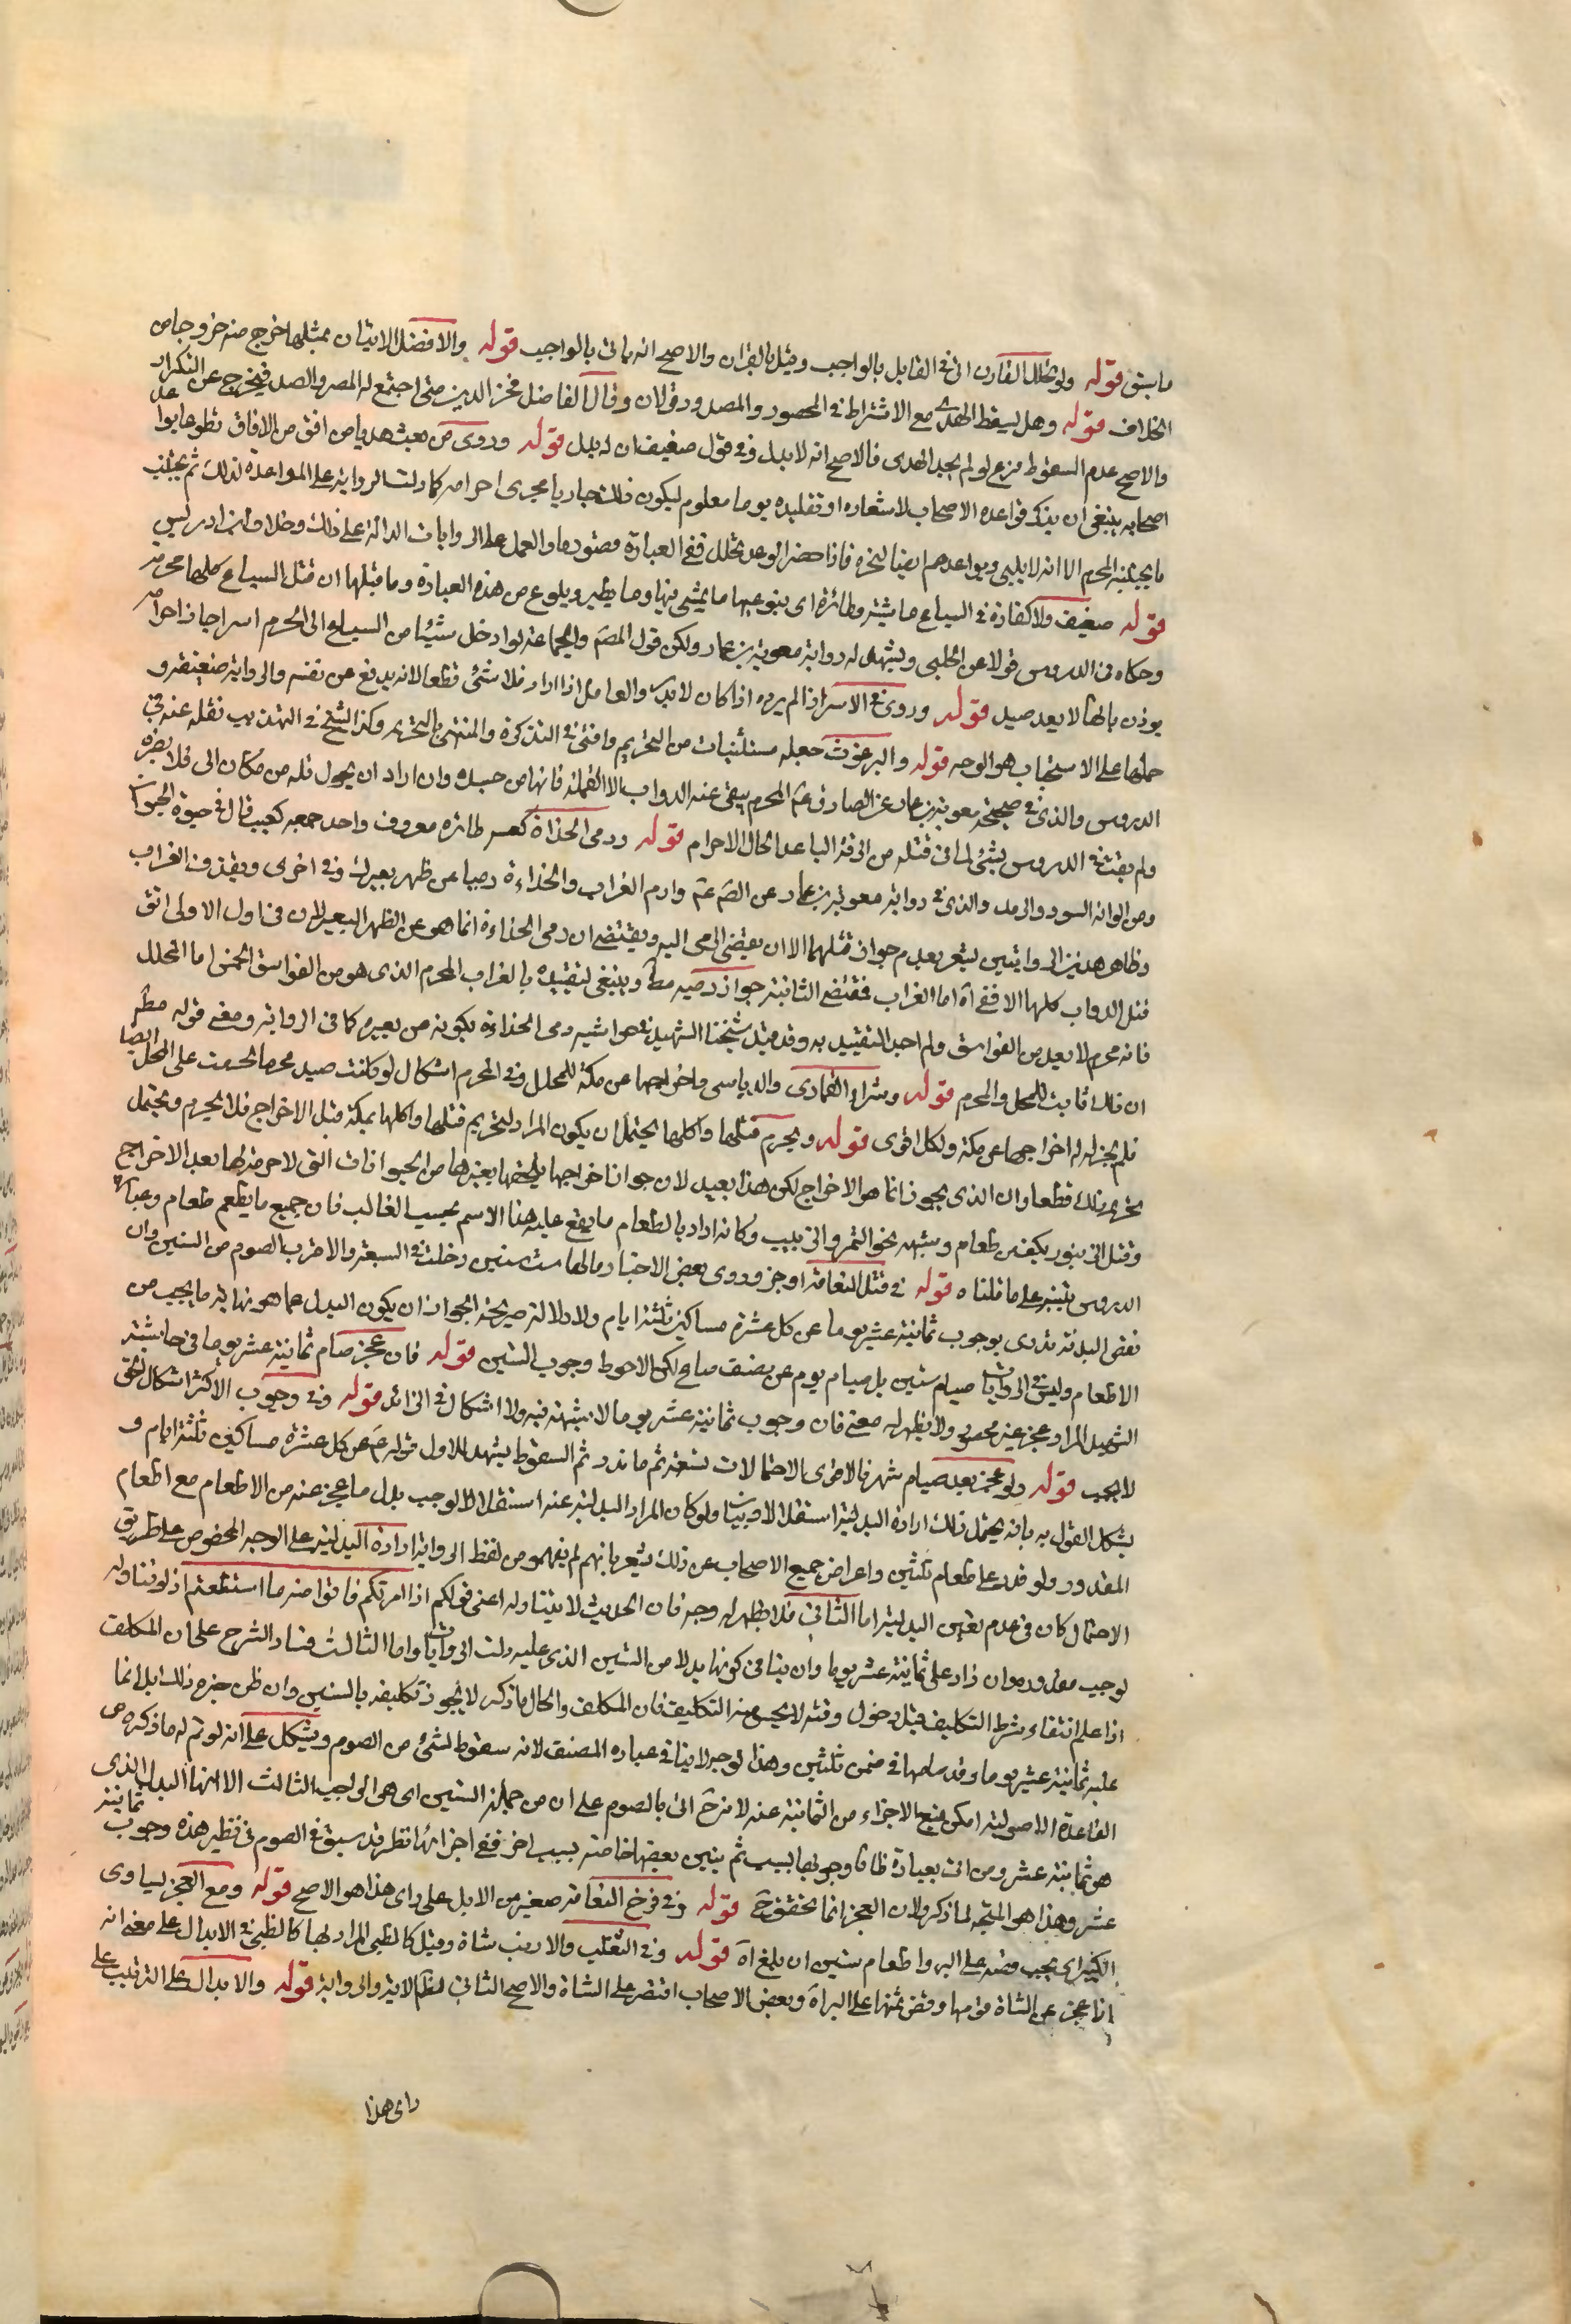 ما سبق قوله ولو تحلل القارن اتى في القابل بالواجب وقيل بالقران والاصح انه ياتي بالواجب قوله والافضل الاتيان بمثل ما خرج منه خروجا من
الخلاف قوله وهل يسقط الهدي مع الاشتراط في المحصور والمصدود قولان وقال الفاضل فخر الدين متى اجتمع له الحصر والصد فيخرج عن التكرار
والاصح عدم السقوط فرع لو لم يجد الهدي فالاصح انه لا بدل وفي قول ضعيف ان له بدل قوله وروي من بعث هديا من افق من الافاق تطوعا يواعد
اصحابه ينبغي ان يذكر قواعده الاصحاب لاشعاره او تقليده يوما معلوم ليكون ذلك جاريا مجرى احرامه كما دلت الرواية على المواعدة لذلك ثم يجتنب
ما يجتنبه المحرم الا انه لا يلبي ويواعدهم ايضا لنحره فاذا حضر الوعد تحلل ففي العبارة قصور ما والعمل على الروايات الدالة على ذلك وخلاف ابن ادريس
ضعيف قوله ولا كفارة في السباع ماشية وطائرة اي بنوعيها ما يمشي منها وما يطير ويلوح من هذه العبارة وما قبلها ان قتل السباع كلها محرمة
وحكاه في الدروس قولا عن الحلبي ويشهد له رواية معوية بن عمار ولكن قول المصنف والجماعة لو ادخل شيئا من السباع الى الحرم اسيرا جاز اخراجه
يوذن بانها لا يعد صيد قوله وروي في الاسد اذا لم يرده اذا كان لا بد والعامل اذا اراد فلا شئ قطعا لانه يدفع عن نفسه والرواية ضعيفة و
حملها على الاستحباب هو الوجه قوله والبرغوث جعله مستثنيات من التحريم وافتى في التذكرة والمنتهى بالتحريم وكذا الشيخ في التهذيب نقله عنه في
الدروس والذي في صحيحة معوية بن عمار عن الصادق ع المحرم يبقى عنه الدواب الا القملة فانها من جسده وان اراد ان يحول قمله من مكان الى فلا يضره
ولم يفت في الدروس بشئ لما في قتله من الرفه الباعد لحال الاحرام قوله ورمى الحداة كعنبه طائره معروف واحد جمعه كعنب قال في حيوة الحيوان
ومن الوانه السود والرمد والذي في رواية معوية بن عمار عن الصادق ع وارم الغراب والحداءة رميا عن ظهر بعيرك وفي اخرى ويقذف الغراب
وظاهر هذين الروايتين يشعر بعدم جواز قتلهما الا ان يفضي الرمي اليه ويقتضي ان رمي الحداءة انما هو عن الظهر البعير لان في اول الاولى اتق
قتل الدواب كلها الا الافعى اه اما الغراب فقتضى الثانية جواز رميه مط وينبغي لتقييده بالغراب المحرم الذي هو من الفواسق الخمس اما المحلل
فانه محرم لا يعد من الفواسق ولم اجد التقييد به وقد قيد شيخنا الشهيد في حواشيه رمي الحداءة بكونه من بعيره كما في الرواية ومعنى قوله مطلقا
ان ذلك ثابت للمحل والمحرم قوله وشراء القماري والدباسي واخراجها من مكة للمحلل وفي المحرم اشكال لو كانت صيد محرما لحرمت على المحل ايضا
فلم يجز له اخراجها عن مكة ولكل اقوى قوله ويحرم قتلها واكلها يحتمل ان يكون المراد لتحريم قتلها واكلها بمكة قبل الاخراج فلا يحرم ويحتمل
تحريم ذلك قطعا وان الذي يجوز انما هو الاخراج لكن هذا بعيد لان جواز اخراجها يلحقها بغيرها من الحيوانات التي لا حرمة لها بعد الاخراج
وقتل الزنبور بكف من طعام وشبهه نحو التمر والزبيب وكانه اراد بالطعام ما يقع عليه هذا الاسم بحسب الغالب فان جميع ما يطعم طعام وعبارة
الدروس ينبه على ما قلناه قوله في قتل النعامة او جزور وروى بعض الاخبار ما لها ست سنين دخلت في السبعة والاقرب الصوم من الستين وان
نقص البدنة تدرى بوجوب ثمانية عشر يوما عن كل عشرة مساكين ثلثة ايام ولا دلالة صريحة الجواز ان يكون البدل عما هو نهاية ما يجب من
الاطعام وليس في الروايات صيام ستين بل صيام يوم عن نصف صاع لكن الاحوط وجوب الستين قوله فان عجز صام ثمانية عشر يوما في حاشية
الشهيد المراد عجز غير محصور ولا يظهر له معنى فان وجوب ثمانية عشر يوما لا شبهة فيه ولا اشكال في الزائد قوله وفي وجوب الاكثر اشكال الحق
لا يجب قوله ولو عجز بعد صيام شهر فالاقوى الاحتمالات تسعة ثم ما قدر ثم السقوط يشهد للاول قوله ع من كل عشرة مساكين ثلثة ايام و
يشكل القول به بانه يحتمل ذلك ارادة البدلية استقلالا وبيانا ولو كان المراد البدلية عنه استقلالا لوجب بدل ما عجز عنه من الاطعام مع اطعام
المقدور ولو قدر على طعام ثلثين واعراض جميع الاصحاب عن ذلك يشعر بانهم لم يفهمو من لفظ الرواية ارادة البدلية على الوجه المخصوص على طريق
الاحتمال كان في عدم تعين البدلية اما الثاني فلا يظهر له وجه فان الحديث لا يتناوله اعني قولكم اذا امرتكم فاتوا منه ما استطعتم اذ لو تناوله
لوجب مقدوره وان زاد على ثمانية عشر يوما وان ينافي كونها بدلا من الستين الذي عليه دلت الروايات واما الثالث فساد الشرح على ان المكلف
اذا علم انتفاء شرط التكليف قبل دخول وقته لا يحسن منه التكليف فان المكلف والحال ما ذكر لا يجوز تكليفه بالستين وان ظن جزم ذلك بل انما
عليه ثمانية عشر يوما وقد صامها في ضمن ثلثين وهذا لوجه لا ينافي عبارة المصنف لانه سقوط لشئ من الصوم ويشكل على انه لو تم له ما ذكره من
القاعدة الاصولية امكن منع الاجزاء من الثمانية عنه لا مزح اتى بالصوم على ان من جملة الستين اي هي الواجب الثالث الا انها البدل الذي
هو ثمانية عشر ومن اتى بعبادة ظانا وجوبها لسبب ثم يتبين بعضها خاصة بسبب اخر ففي اجزائها نظر قد سبق في الصوم في نظير هذه وجوب ثمانية
عشر وهذا هو المتجه لما ذكر ولان العجز انما تحقق ح قوله وفي فرخ النعامة صغير من الابل على راي هذا هو الاصح قوله ومع العجز يساوي
الكبير اي يجب فضه على البر واطعام ستين ان بلغ اه قوله وفي الثعلب والارنب شاة وقيل كالظبي المراد لها كالظبي في الابدال على معنى انه
اذا عجز عن الشاة قومها وفض ثمنها على البر اه وبعض الاصحاب اقتصر على الشاة والاصح الثاني لظم الاية والرواية قوله والابدال على الترتيب على
راى هذا